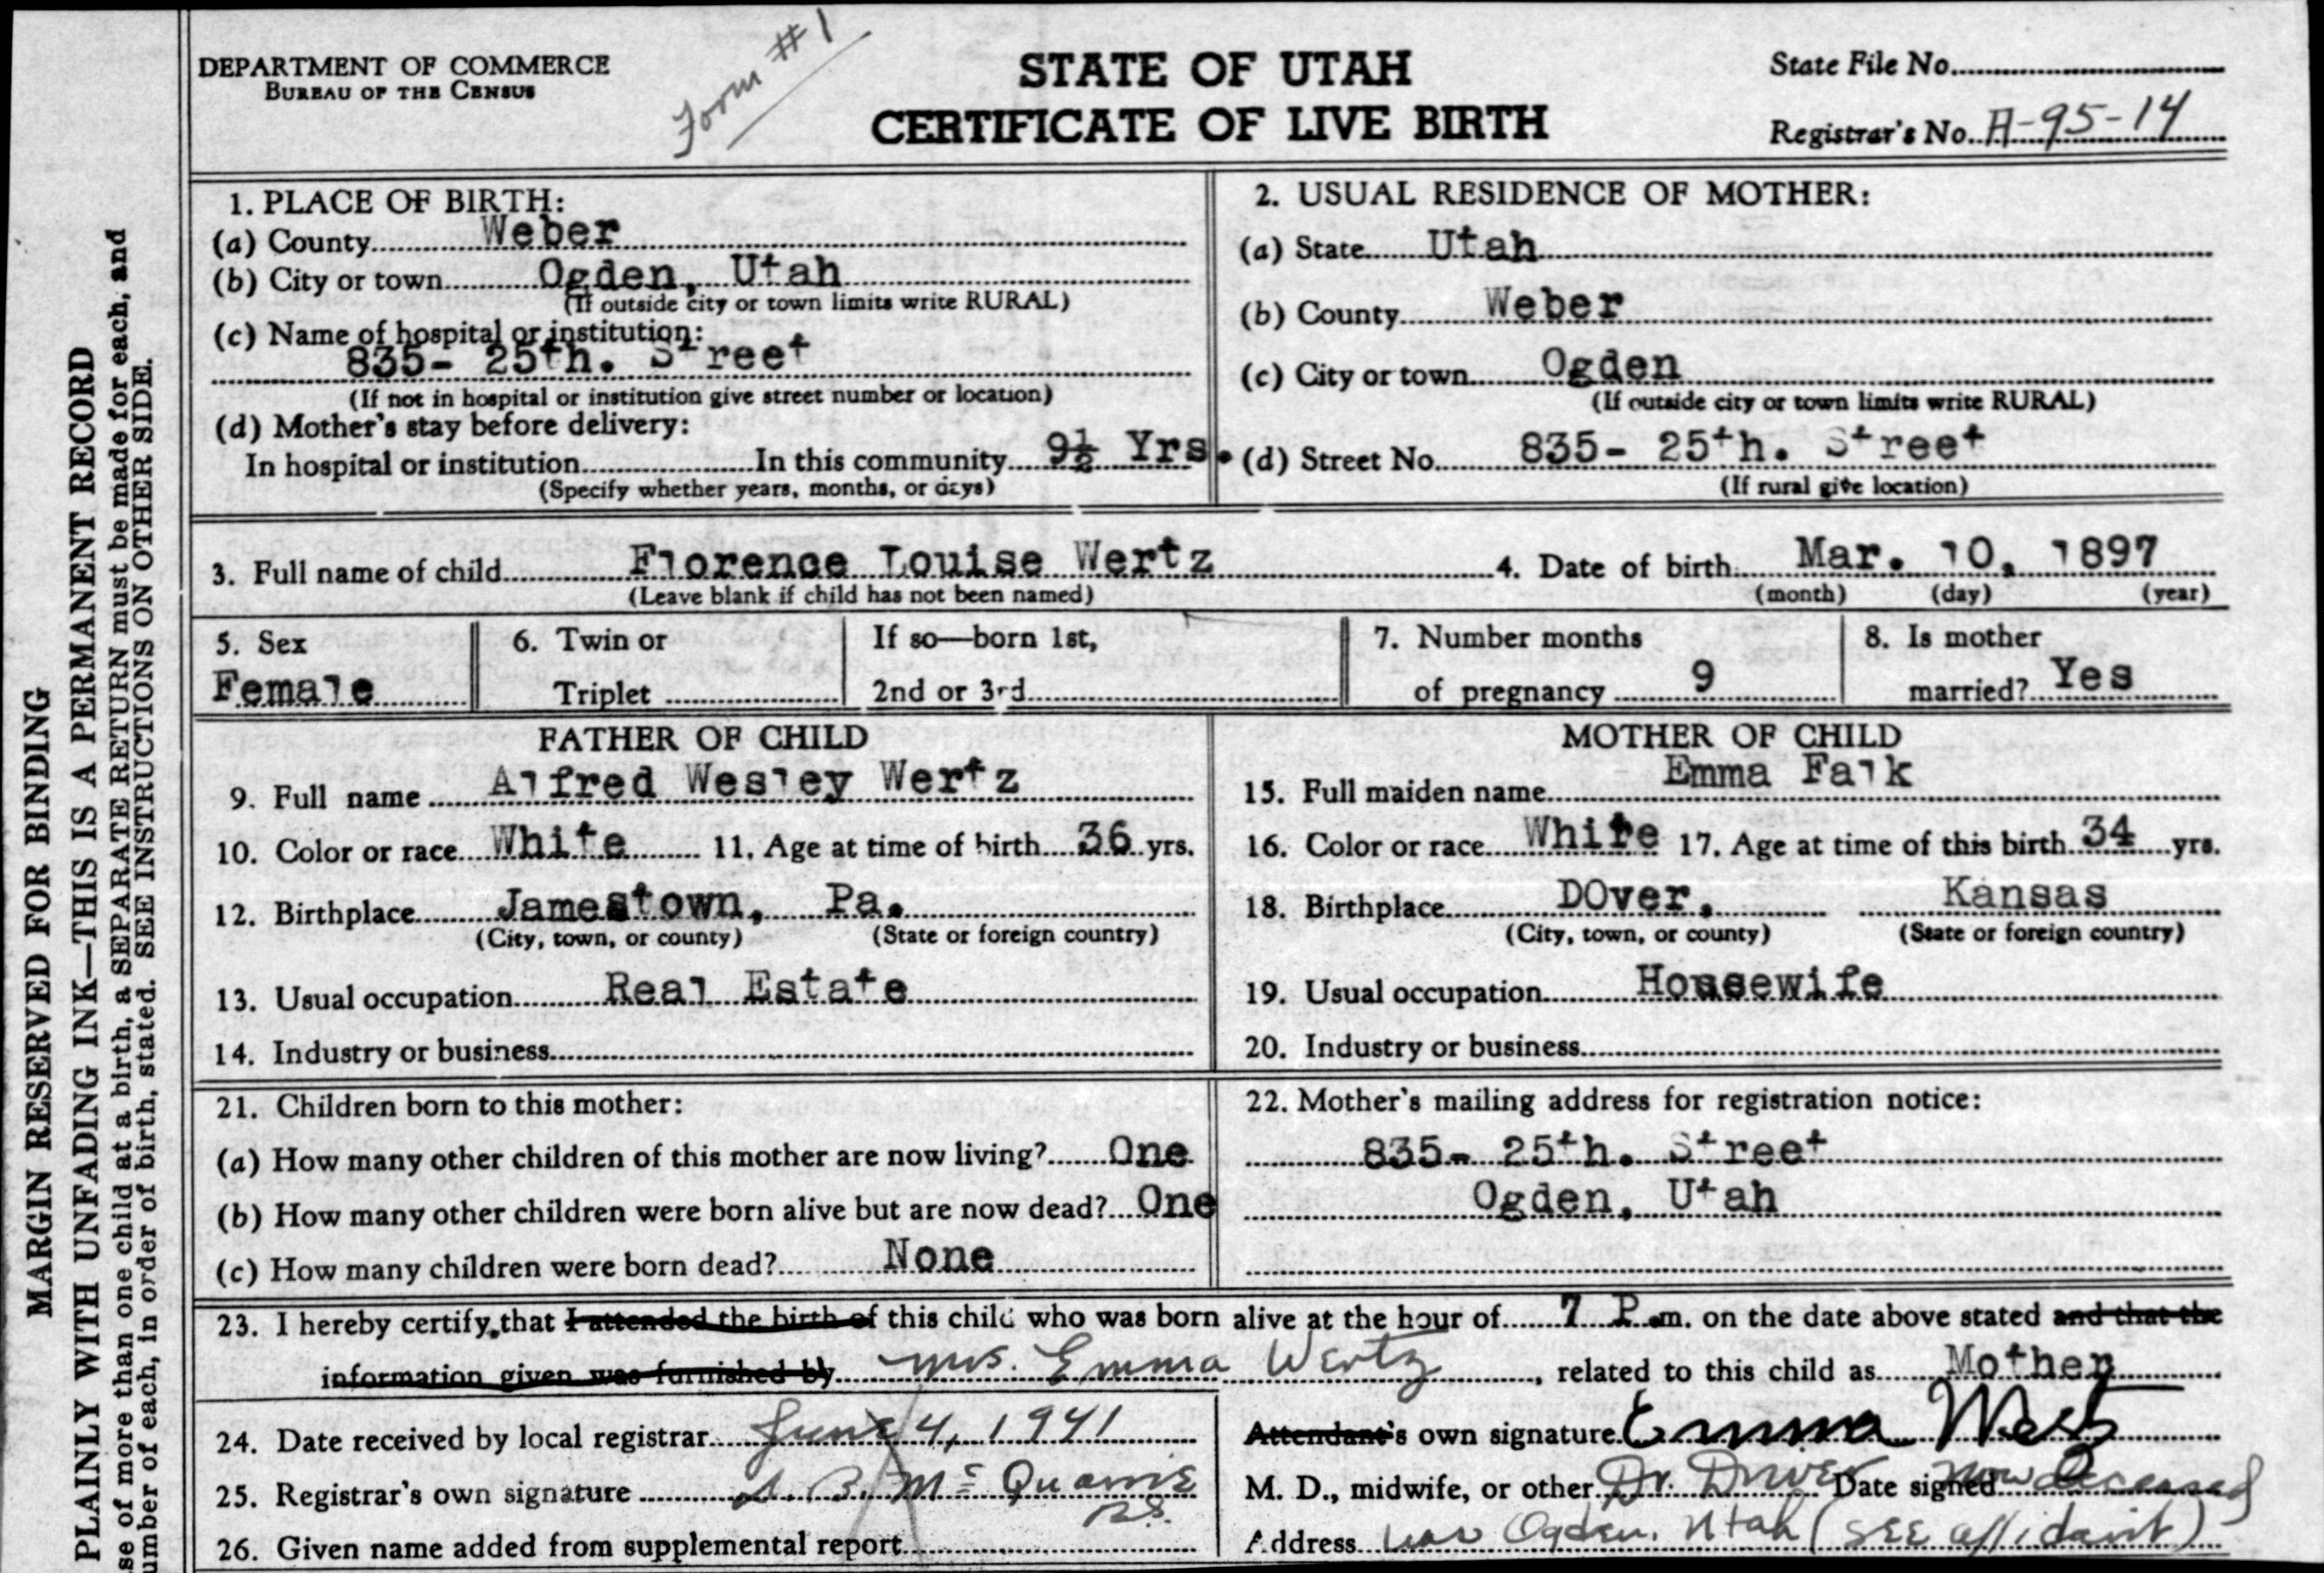 Form #1
DEPARTMENT OF COMMERCE
BUREAU OF THE CENSUS
STATE OF UTAH
CERTIFICATE OF LIVE BIRTH
State File No.
Registrar's No. A-95-14
MARGIN RESERVED FOR BINDING
PLAINLY WITH UNFADING INK—THIS IS A PERMANENT RECORD
se of more than one child at a birth, a SEPARATE RETURN must be made for each, and
umber of each, in order of birth, stated. SEE INSTRUCTIONS ON OTHER SIDE.
1. PLACE OF BIRTH:
(a) County Weber
(b) City or town Ogden, Utah
(If outside city or town limits write RURAL)
(c) Name of hospital or institution:
835- 25th. Street
(If not in hospital or institution give street number or location)
(d) Mother's stay before delivery:
In hospital or institution In this community 9½ Yrs.
(Specify whether years, months, or days)
2. USUAL RESIDENCE OF MOTHER:
(a) State Utah
(b) County Weber
(c) City or town Ogden
(If outside city or town limits write RURAL)
(d) Street No. 835- 25th. Street
(If rural give location)
3. Full name of child Florence Louise Wertz 4. Date of birth Mar. 10, 1897
(Leave blank if child has not been named) (month) (day) (year)
5. Sex
Female
6. Twin or
Triplet
If so—born 1st,
2nd or 3rd
7. Number months
of pregnancy 9
8. Is mother
married? Yes
FATHER OF CHILD
9. Full name Alfred Wesley Wertz
10. Color or race White 11. Age at time of birth 36 yrs.
12. Birthplace Jamestown, Pa.
(City, town, or county) (State or foreign country)
13. Usual occupation Real Estate
14. Industry or business
MOTHER OF CHILD
15. Full maiden name Emma Falk
16. Color or race White 17. Age at time of this birth 34 yrs.
18. Birthplace DOver, Kansas
(City, town, or county) (State or foreign country)
19. Usual occupation Housewife
20. Industry or business
21. Children born to this mother:
(a) How many other children of this mother are now living? One
(b) How many other children were born alive but are now dead? One
(c) How many children were born dead? None
22. Mother's mailing address for registration notice:
835- 25th. Street
Ogden, Utah
23. I hereby certify, that I attended the birth of this child who was born alive at the hour of 7 P.m. on the date above stated and that the
information given was furnished by Mrs. Emma Wertz, related to this child as Mother
24. Date received by local registrar June 4, 1941
25. Registrar's own signature A. B. McQuarrie
B.S.
26. Given name added from supplemental report
Attendant's own signature Emma
M. D., midwife, or other Dr. Driver Date signed now deceased
Address was Ogden, Utah (SEE affidavit)